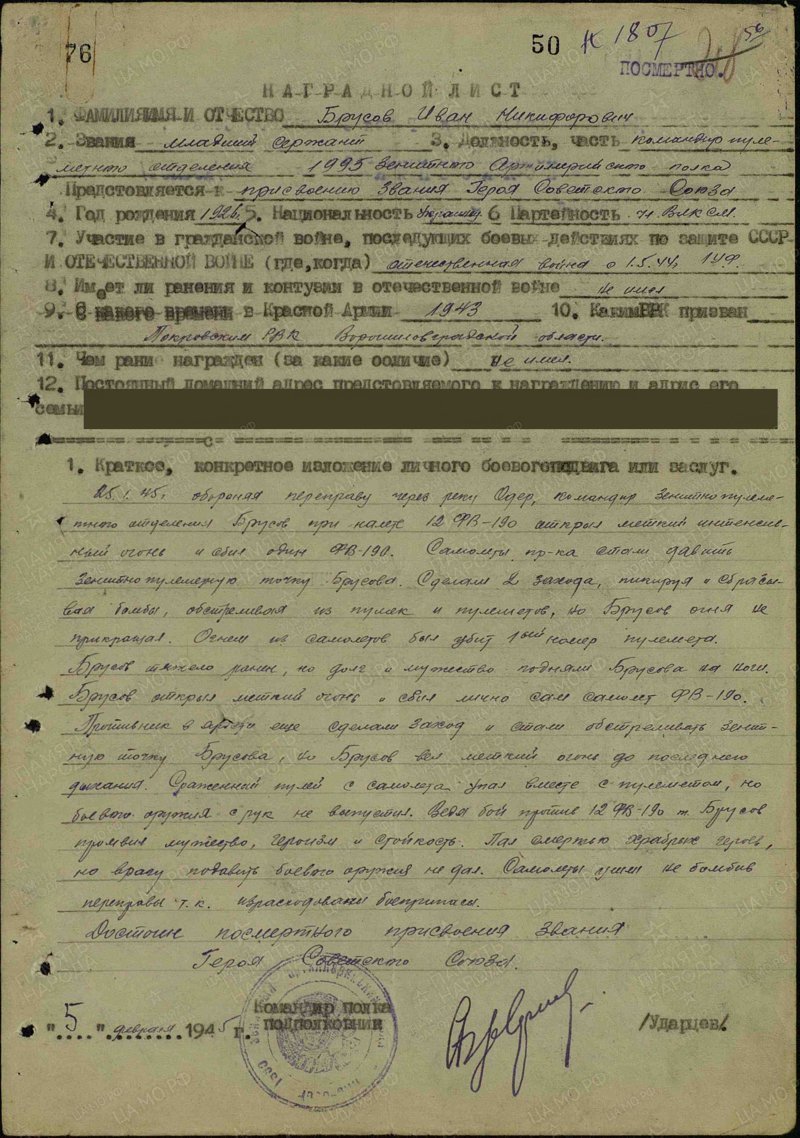 76
50 К 1807 56
ПОСМЕРТНО.
НАГРАДНОЙ ЛИСТ
1. ФАМИЛИЯ ИМЯ И ОТЧЕСТВО Брусов Иван Никифорович
2. Звания младший сержант 3. Должность, часть командир пуле-
метного отделения 1995 зенитного Артиллерийского полка
Предстовляется к присвоению Звания Героя Советского Союза
4. Год рождения 1926 5. Национальность украинец 6 Партейность чл. ВЛКСМ
7. Участие в гражданской войне, последующих боевых действиях по защите СССР
И ОТЕЧЕСТВЕННОЙ ВОЙНЕ (где, когда) отечественная война с 1.5.44. 1УФ.
8. Имеет ли ранения и контузии в отечественной войне не имел
9. С какого времени в Красной Армии 1943 10. Каким РВК призван
Покровским РВК Ворошиловградской области.
11. Чем рани награжден (за какие ооличие) не имел.
12. Постоянный домашний адрес предстовляемого к награждению и адрис его
семьи
1. Краткое, конкретное изложение личного боевого подвига или заслуг.
25.1.45г обороняя переправу через реку Одер, командир зенитно пулеме-
тного отделения Брусов при налете 12 ФВ-190 открыл меткий интенсив-
ный огонь и сбил один ФВ-190. Самолеты пр-ка стали давить
зенитно пулеметную точку Брусова. Сделали 2 захода, пикируя и сбрасы-
вая бомбы, обстреливая из пушек и пулеметов, но Брусов огня не
прикращал. Огнем из самолетов был убит 1ый номер пулемета.
Брусов тяжело ранен, но долг и мужество подняли Брусова на ноги.
Брусов открыл меткий огонь и сбил лично сам самолет ФВ-190.
Противник в ярости еще сделал заход и стали обстреливать зенит-
ную точку Брусова, но Брусов вел меткий огонь до последнего
дыхания. Сраженный пулей с самолета упал вместе с пулеметом, но
боевого оружия с рук не выпустил. Ведя бой против 12 ФВ-190 т. Брусов
проявил мужество, героизм и стойкость. Пал смертью храбрых героев,
но врагу подавить боевого оружия не дал. Самолеты ушли не бомбив
переправы т.к. израсходовали боеприпасы.
Достоин посмертного присвоения звания
Героя Советского Союза.
"5" февраля 1945 г.
Командир полка
подполковник
/Ударцев/